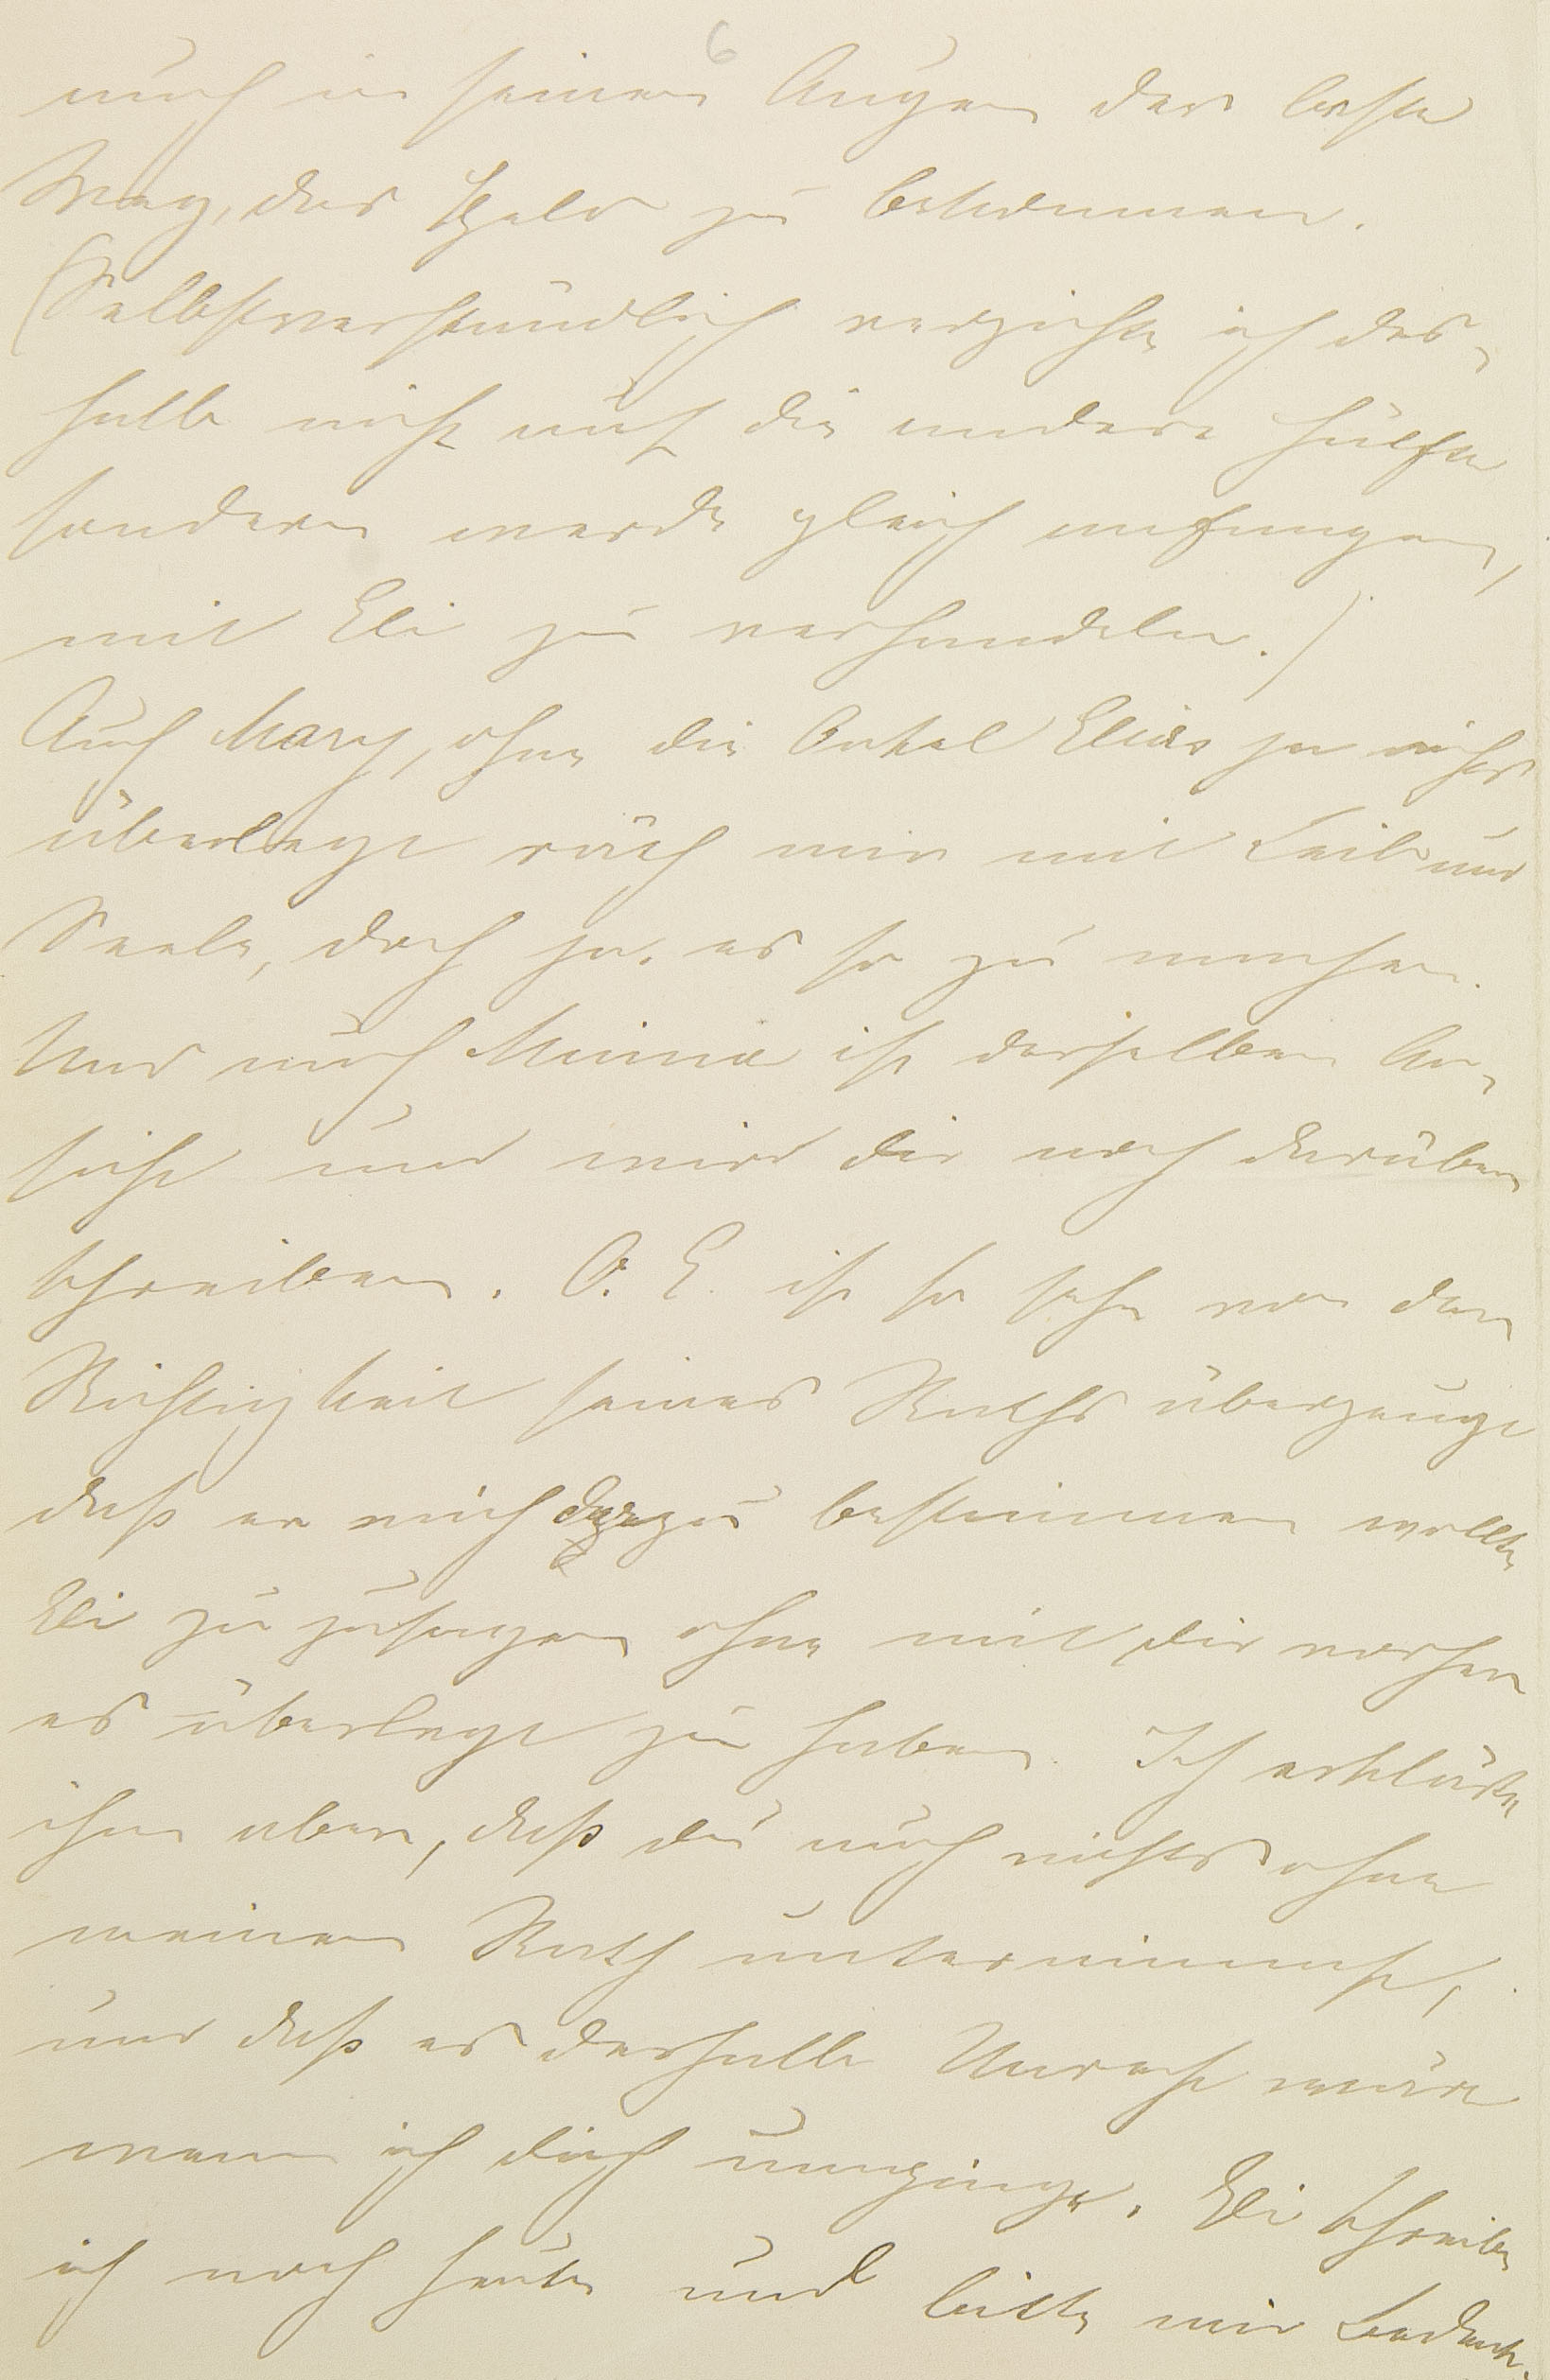 6
auch in seinen Augen der beste
Weg, das Geld zu bekommen.
(Selbstverständlich verzichte ich des-
halb nicht auf die andere Hälfte
sondern werde gleich anfangen,
mit Eli zu verhandeln.)
Auch Mary, ohne die Onkel Elias ja nichts
überlegt räth mir mit Leib und
Seele, doch ja, es so zu machen.
Und auch Minna ist derselben An-
sicht und wird dir noch darüber
schreiben. O. E. ist so sehr von der
Richtigkeit seines Raths überzeugt
daß er mich dazu bestimmen wollte
Eli zuzusagen ohne mit dir vorher
es überlegt zu haben. Ich erklärte
ihm aber, daß du auch nichts ohne
meinen Rath unternimmst,
und daß es deshalb Unrecht wäre
wenn ich dich umginge. Eli schreibe
ich noch heute und bitte mir Bedenk-